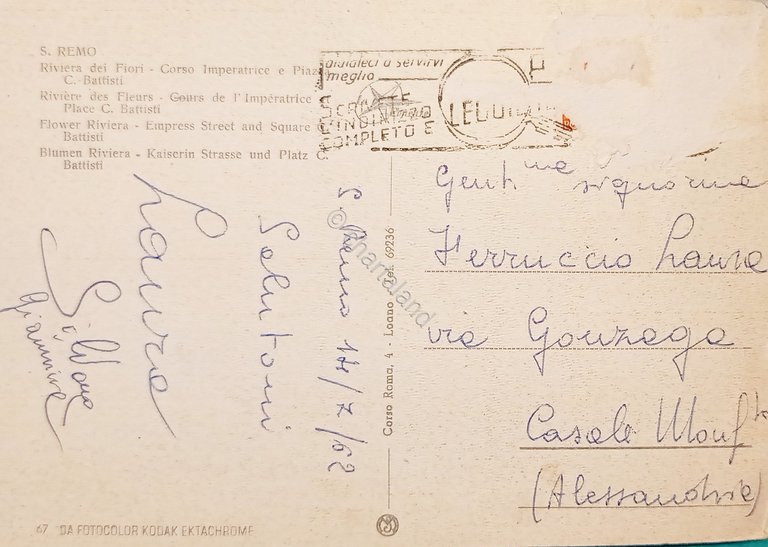 S. REMO
Riviera dei Fiori - Corso Imperatrice e Piaz
C. Battisti
Rivière des Fleurs - Cours de l'Impératrice
Place C. Battisti
Flower Riviera - Empress Street and Square C.
Battisti
Blumen Riviera - Kaiserin Strasse und Platz C.
Battisti
aiutateci a servirvi
meglio
L'INDIRIZZO
COMPLETO E
S. Remo 14/7/62
Salutoni
Laura
Silvana
Giannina
©Chartaland
Corso Roma, 4 - Loano - Tel. 69236
Gent.me signorine
Ferruccio Laura
via Gonzaga
Casale Monf.to
(Alessandria)
67 DA FOTOCOLOR KODAK EKTACHROME